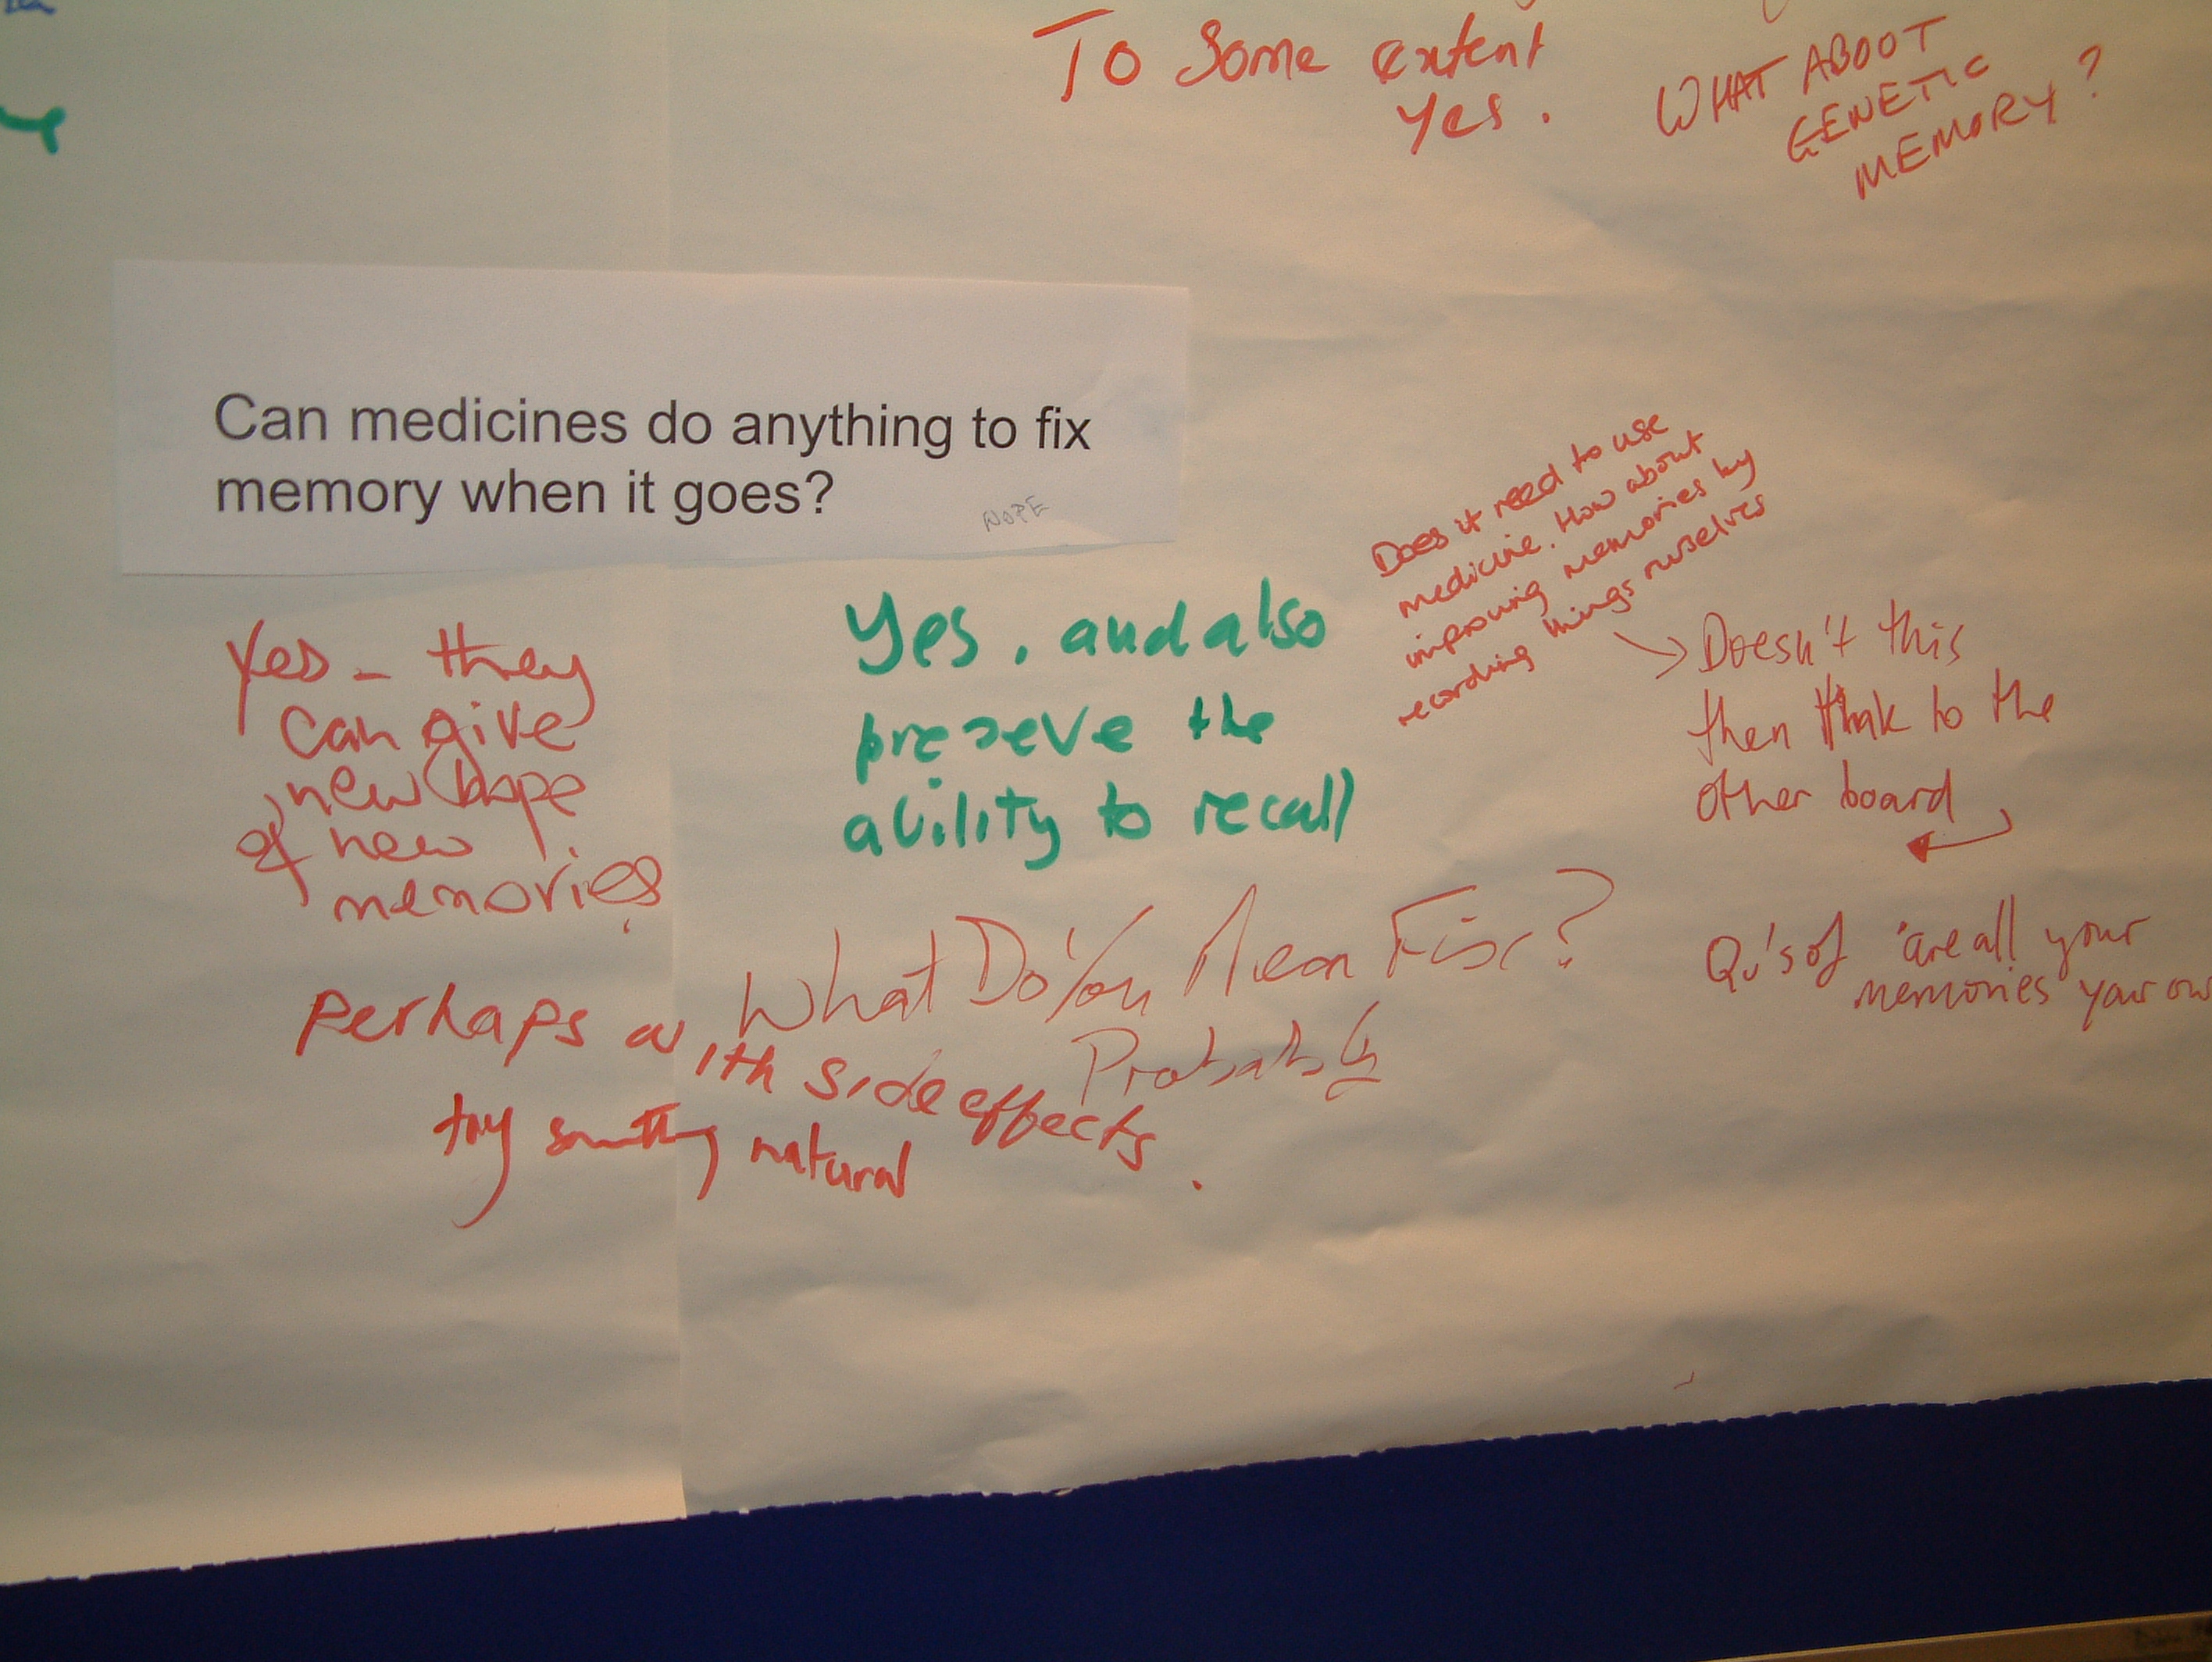 To Some extent
Yes.
WHAT ABOUT
GENETIC
MEMORY?
Can medicines do anything to fix
memory when it goes?
NOPE
Does it need to use
medicine. How about
improving memories by
recording things ourselves
Yes - they
can give
new hope
of new
memories
Yes, and also
preseve the
ability to recall
Doesn't this
then think to the
other board
Qu's of 'are all your
memories your ow
What Do You Mean Fix?
Probably
Perhaps with side effects.
try something natural